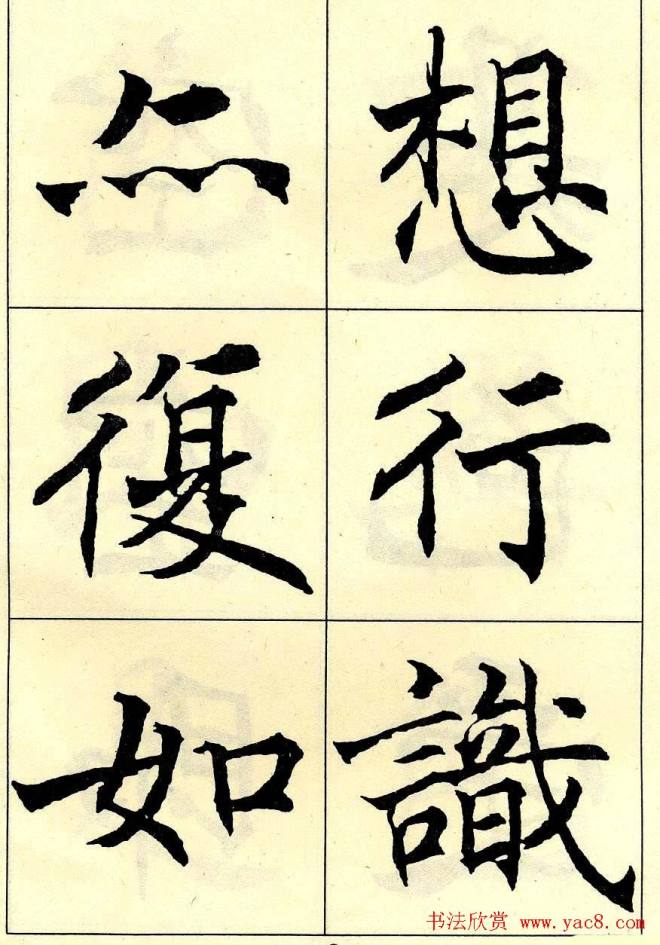 想行識
亦復如
书法欣赏 www.yac8.com